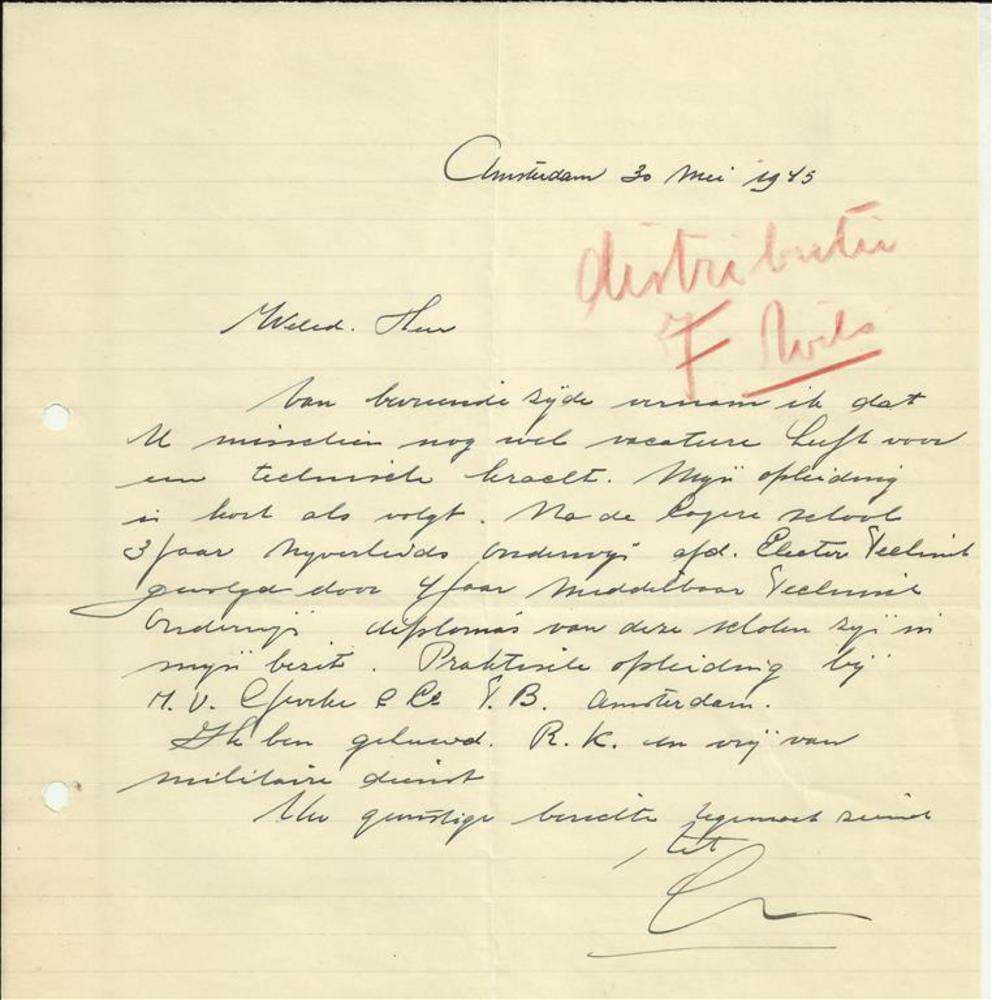 Amsterdam 30 Mei 1945
distributie
F
Weled. Heer
Van bevriende zijde vernam ik dat
U misschien nog wel vacature heeft voor
een technische kracht. Mijn opleiding
is kort als volgt. Na de lagere school
3 jaar Nijverheids Onderwijs afd. Electro Techniek
gevolgd door 4 jaar Middelbaar Technisch
Onderwijs diploma's van deze scholen zijn in
mijn bezit. Praktische opleiding bij
N.V. & Co T.B. Amsterdam.
Ik ben gehuwd. R.K. en vrij van
militaire dienst
Uw gunstige berichte tegemoet ziend